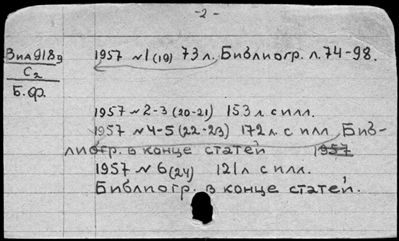 -2-
ВиА918д
С2
Б.ф.
1957 №1(19) 73 л. Библиогр. л. 74-98.
1957 №2-3 (20-21) 153 л. с илл.
1957 №4-5 (22-23) 172 л. с илл. Биб-
лиогр. в конце статей 1957
1957 №6(24) 121 л с илл.
Библиогр. в конце статей.